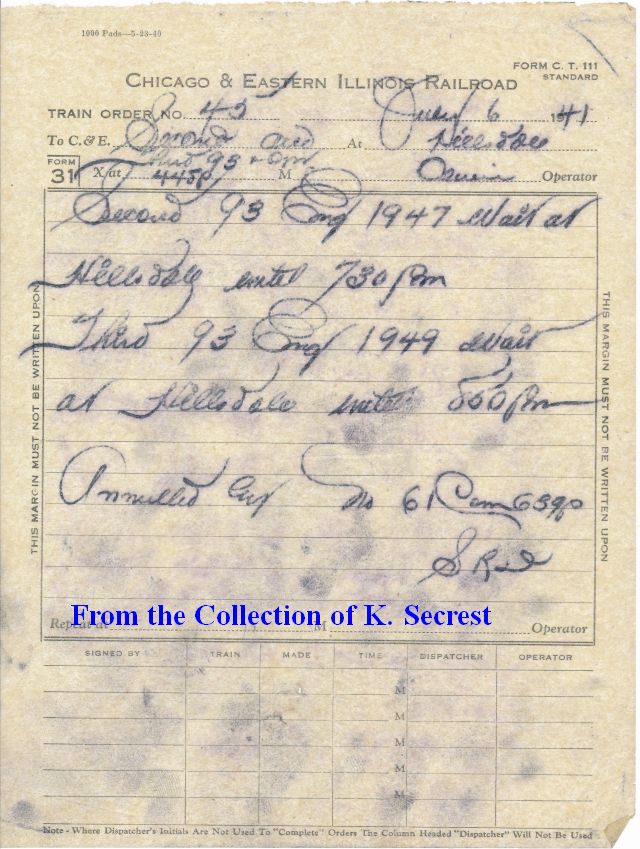 1000 Pads—5-23-40
FORM C. T. 111
STANDARD
CHICAGO & EASTERN ILLINOIS RAILROAD
TRAIN ORDER NO. 45 July 6 1941
To C. & E. Second and At Hillsdale
Third 93 + Opr
FORM 31 X at 445p M Operator
Second 93 Eng 1947 Wait at
Hillsdale until 730 pm
Third 93 Eng 1949 Wait
at Hillsdale until 800 pm
Annulled by No 61
Repeat at M Operator
From the Collection of K. Secrest
SIGNED BY TRAIN MADE TIME DISPATCHER OPERATOR
M
M
M
M
M
Note - Where Dispatcher's Initials Are Not Used To "Complete" Orders The Column Headed "Dispatcher" Will Not Be Used
THIS MARGIN MUST NOT BE WRITTEN UPON
THIS MARGIN MUST NOT BE WRITTEN UPON